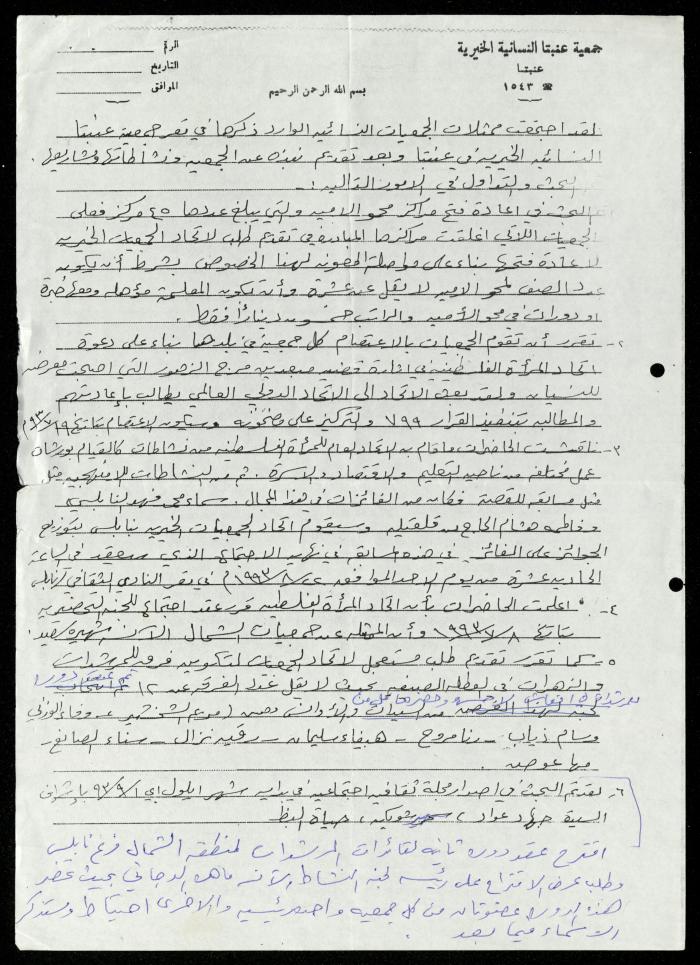 جمعية عنبتا النسائية الخيرية
عنبتا
☎ ١٥٤٣
الرقم
التاريخ
الموافق
بسم الله الرحمن الرحيم
لقد اجتمعت ممثلات الجمعيات النسائيه الوارد ذكرها في مقر جمعية عنبتا
النسائيه الخيريه في عنبتا وبعد تقديم نبذه عن الجمعيه ونشاطاتها ومشاريعها .
تم البحث والتداول في الامور التاليه :-
تم البحث في اعادة فتح مراكز محو الاميه والتي يبلغ عددها ٤٥ مركز فعلى
الجمعيات اللاتي اغلقت مراكزها المبادره في تقديم طلب لاتحاد الجمعيات الخيريه
لاعادة فتحها بناء على مواصلة بهذا الخصوص بشرط أن يكون
عدد الصف لمحو الاميه لا يقل عن عشرة وأن تكون المعلمة مؤهله ومعها خبرة
او دورات في محو الأميه والراتب خمسون دينارًا فقط .
٢- تقرر أن تقوم الجمعيات بالاعتصام كل جمعية في بلدها بناء على دعوة
اتحاد المرأة الفلسطينيه في اثارة قضية مبعدين مرج الزهور التي اصبحت معرضه
للنسيان ولقد بعث الاتحاد الى الاتحاد الدولي العالمي يطالب بإعادتهم
والمطالبه بتنفيذ القرار ٧٩٩ والتركيز على وسيكون الاعتصام بتاريخ ١٩/٧/٩٣م
٣- ناقشت الحاضرات ما قام به الاتحاد العام للمرأة الفلسطينيه من نشاطات كالقيام بورشات
عمل مختلفه من ناحية التعليم والاقتصاد والاسرة . ثم من النشاطات اللامنهجيه مثل
مثل مسابقه للقصة فكان من الفائزات في هذا المجال . سماء محمد فهد النابلسي
وفاطمه هشام الحاج من قلقيليه وسيقوم اتحاد الجمعيات الخيريه نابلس بتوزيع
الجوائز على الفائز في هذه المسابقه في نهاية الاجتماع الذي سيعقد في الساعة
الحاديه عشرة من يوم الاحد الموافقه ٢٢/٨/١٩٩٣م في مقر النادي الثقافي
٤- اعلمت الحاضرات بأن اتحاد المرأة الفلسطينيه قرر عقد اجتماع للجنه التحضيريه
بتاريخ ٨/٧/١٩٩٣ وأن الممثله عن جمعيات الشمال الآنسه شهيره
٥- كما تقرر تقديم طلب مستعجل لاتحاد الجمعيات لتكوين فرقه للمرشدات
والزهرات في العطله الصيفيه بحيث لا يقل عدد الفرقه عن ١٢ تم عقد دوره
للمرشدات وحضرها كل من
لهذا الغرض من السيدات والأوانس وهن (مريم الشخشير - وفاء الوزني
وسام ذياب - رنا مروح - هيفاء سليمان - رغيد نزال - سناء الصانع -
مها عوض .
٦- لقد تم البحث في اصدار مجلة ثقافيه اجتماعيه في بداية شهر ايلول اي ١/٩/٩٣ بإشراف
السيدة جهاد عواد ، سمر شوكيه ، حياة البظ
اقترح عقد دوره ثانيه لقائدات المرشدات لمنطقه الشمال فرع نابلس
وطلب عرض الاقتراح على رئيسه لجنة النشاط الآنسه ماهره الدجاني بحيث تحضر
هذه الدوره عضوتان من كل جمعيه واحده رئيسيه والاخرى احتياط وستذكر
الاسماء فيما بعد .